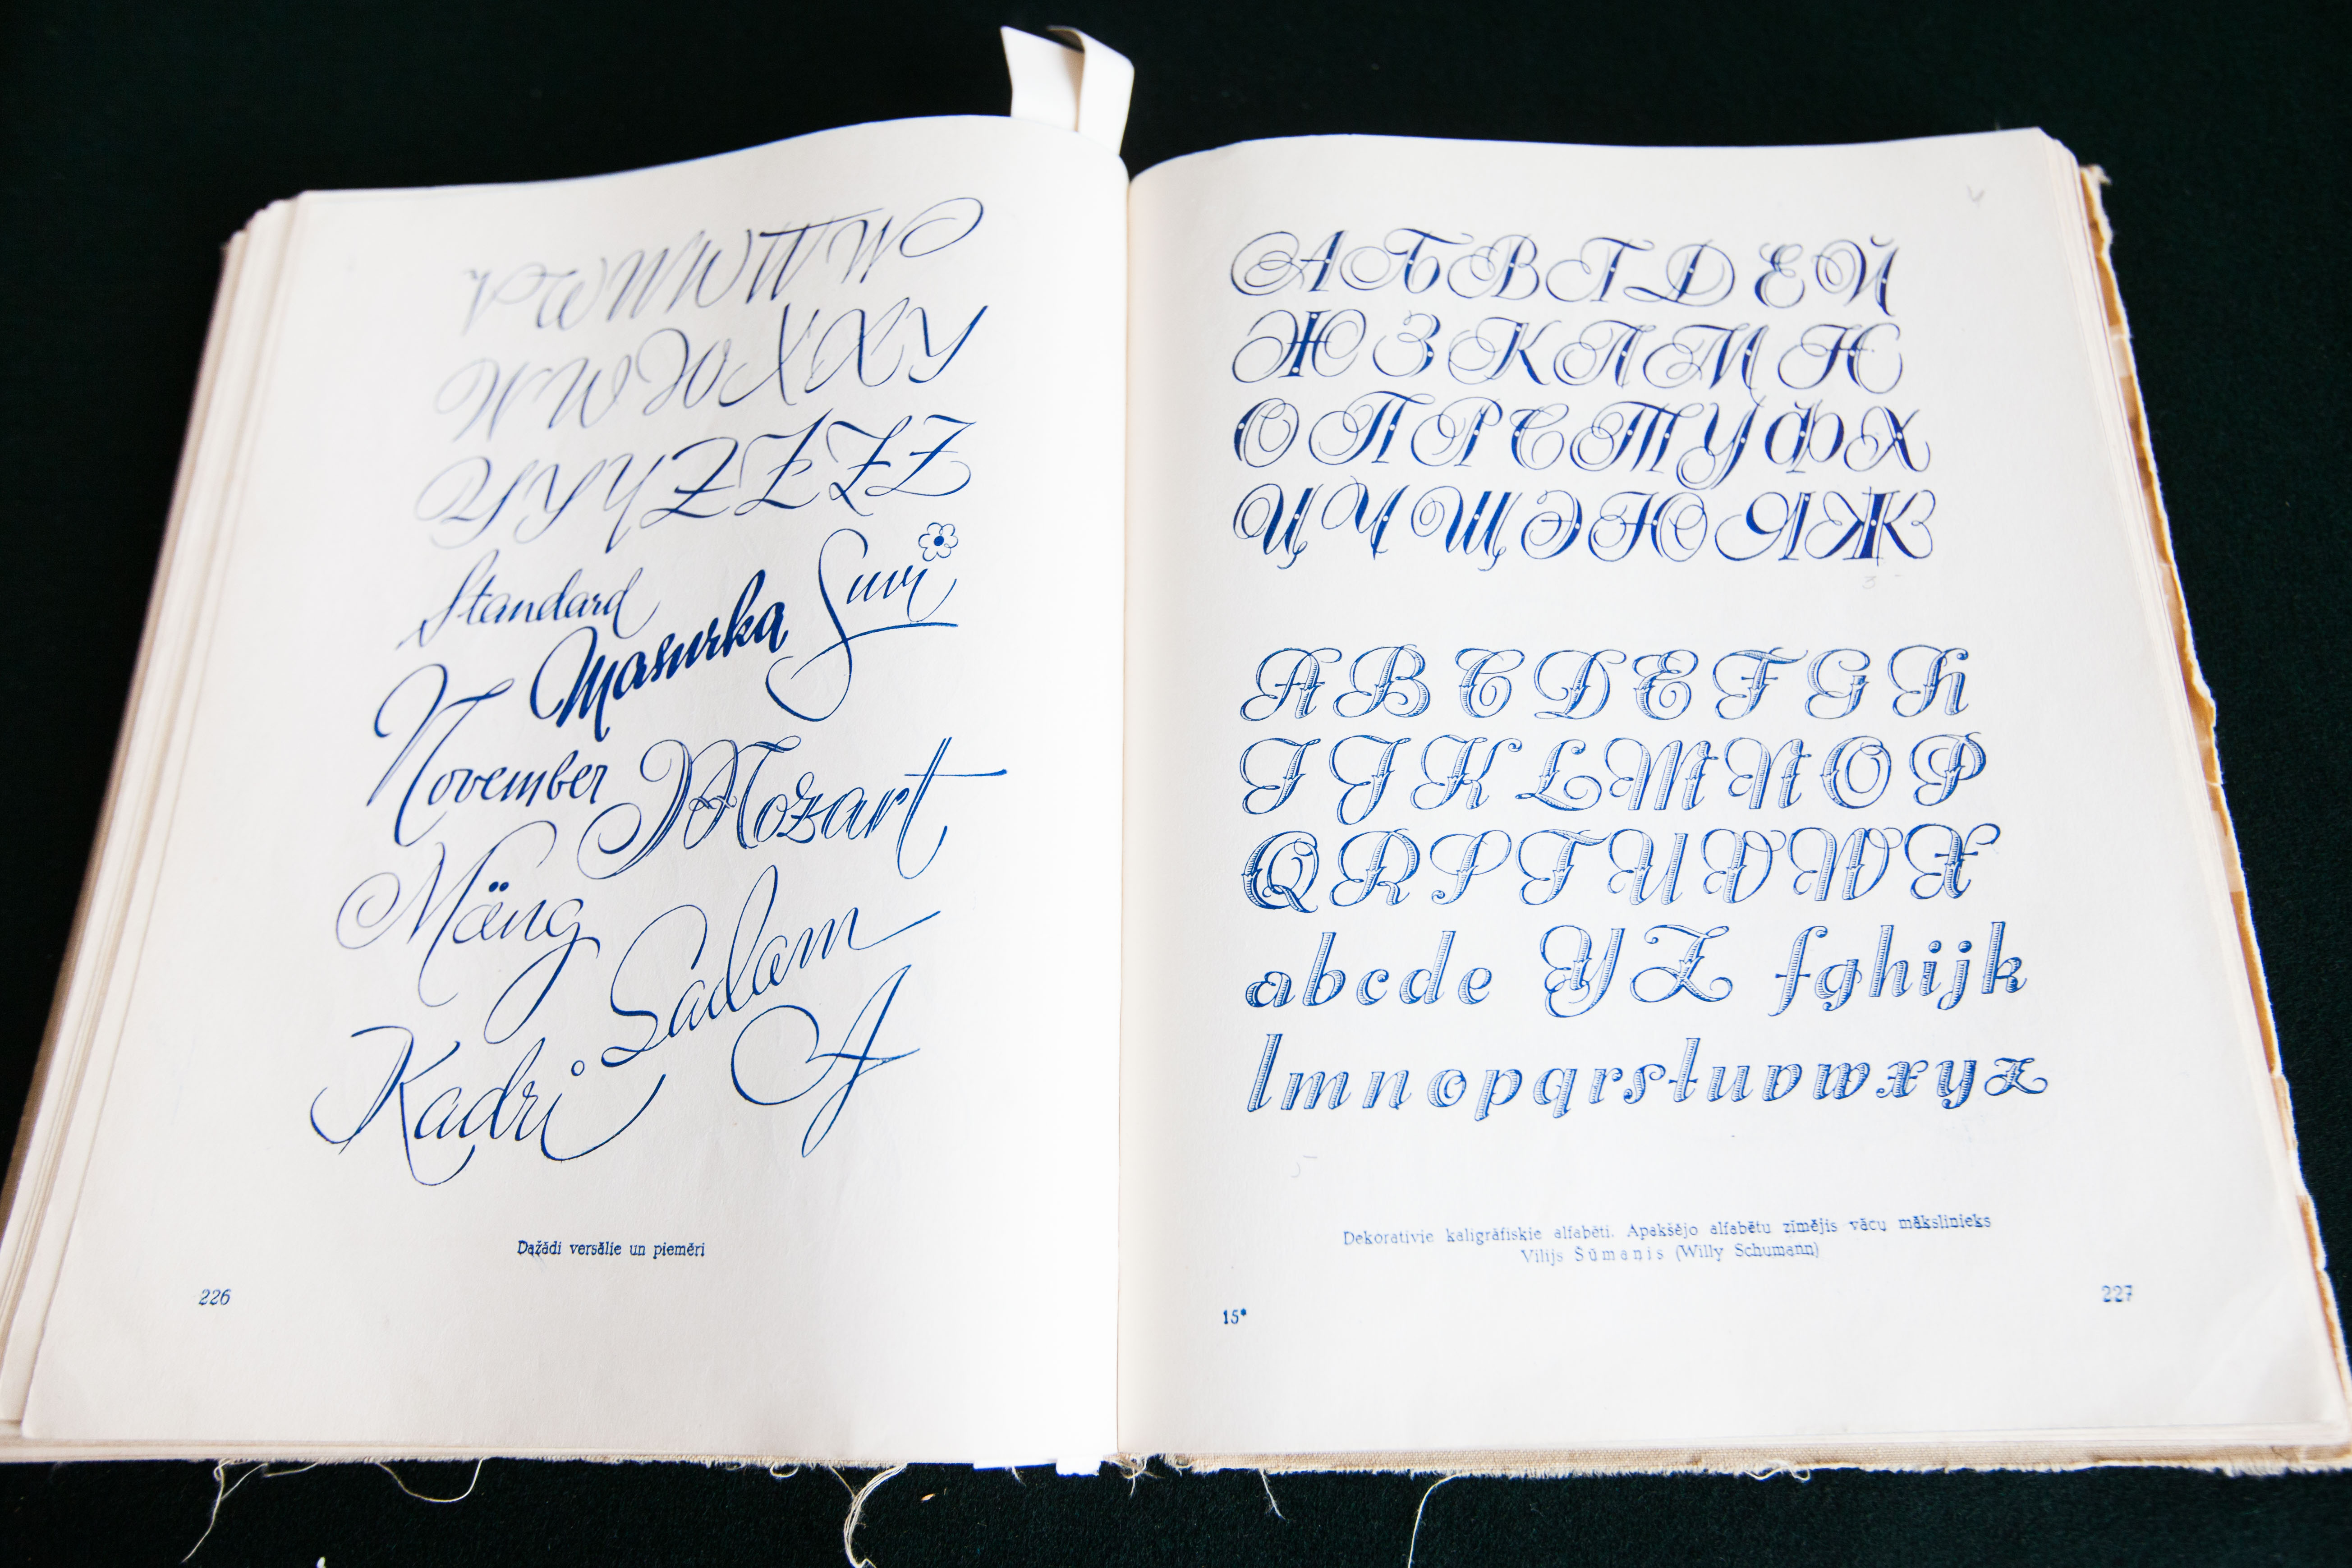 V W W W W TT W
W W W X X Y
Y Y Y Z Z Z Z
Standard
Masurka Suvi
November Mozart
Mäng
Sadam
Kadri A
Dažādi versālie un piemēri
226
А Б В Г Д Е Й
Ж З К Л М Н
О П Р С Т У Ф Х
Ц Ч Щ Э Ю Я Ж
A B C D E F G H
I J K L M N O P
Q R S T U V W X
abcde Y Z fghijk
lmnopqrstuvwxyz
Dekoratīvie kaligrāfiskie alfabēti. Apakšējo alfabētu zīmējis vācu mākslinieks
Vilijs Šūmanis (Willy Schumann)
15*
227